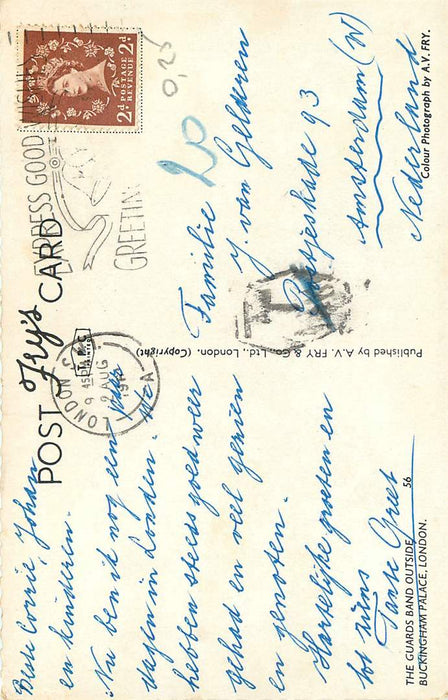 POST Fry's CARD
Beste Corrie, Johan
en kinderen.
Nu ben ik nog een paar
dagen in Londen. We
hebben steeds goed weer
gehad en veel gezien
en genoten.
Hartelijke groeten en
tot ziens
Tante Greet
THE GUARDS BAND OUTSIDE
BUCKINGHAM PALACE, LONDON.
56
Published by A.V. FRY & Co., Ltd., London. (Copyright)
2d POSTAGE REVENUE 2d
0,25
20
ADDRESS GOOD
GREETIN
LONDON
9 45
2 AUG
19
A
T
Familie
J. van Gelderen
Postjeskade 93
Amsterdam (W)
Nederland
Colour Photograph by A.V. FRY.